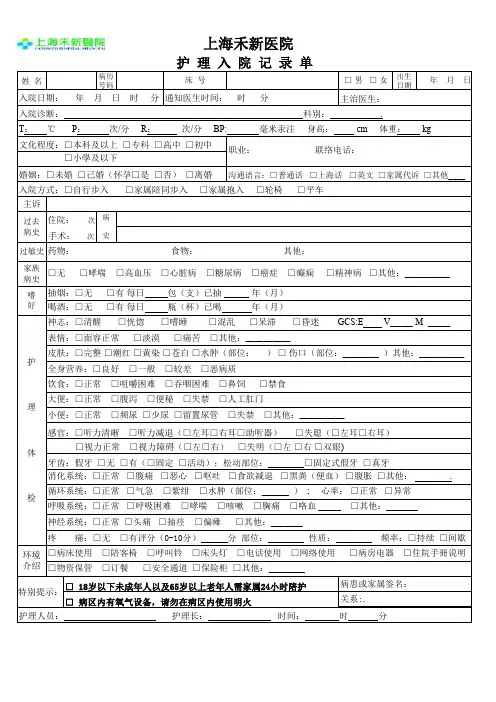 上海禾新醫院
上海禾新医院
护 理 入 院 记 录 单
姓 名 病历号码 床 号 □男 □女 出生日期 年 月 日
入院日期： 年 月 日 时 分 通知医生时间： 时 分 主治医生：
入院诊断： 科别： .
T： ℃ P： 次/分 R： 次/分 BP: 毫米汞注 身高： cm 体重： kg
文化程度：□本科及以上 □专科 □高中 □初中 职业： 联络电话：
□小學及以下
婚姻：□未婚 □已婚（怀孕□是 □否） □离婚 沟通语言：□普通话 □上海话 □英文 □家属代诉 □其他____
入院方式：□自行步入 □家属陪同步入 □家属抱入 □轮椅 □平车
主诉
过去病史 住院： 次 病史
手术： 次
过敏史 药物： 食物： 其他：
家族病史 □无 □哮喘 □高血压 □心脏病 □糖尿病 □癌症 □癫痫 □精神病 □其他：________
嗜好 抽烟：□无 □有 每日____包（支）已抽____年（月）
喝酒：□无 □有 每日____瓶（杯）已喝____年（月）
护理体检
神志：□清醒 □恍惚 □嗜睡 □混乱 □呆滞 □昏迷 GCS:E____V____M____
表情：□面容正常 □淡漠 □痛苦 □其他：________
皮肤：□完整 □潮红 □黄染 □苍白 □水肿（部位： ） □ 伤口（部位：______）其他：________
全身营养：□良好 □一般 □较差 □恶病质
饮食：□正常 □咀嚼困难 □吞咽困难 □鼻饲 □禁食
大便：□正常 □腹泻 □便秘 □失禁 □人工肛门
小便：□正常 □频尿 □少尿 □留置尿管 □失禁 □其他：________
感官：□听力清晰 □听力减退（□左耳□右耳□助听器） □失聪（□左耳□右耳）
□视力正常 □视力障碍（□左□右） □失明（□左 □右 □双眼）
牙齿：假牙 □无 □有（□固定 □活动）；松动部位：________□固定式假牙 □真牙
消化系统：□正常 □腹痛 □恶心 □呕吐 □食欲减退 □黑粪（便血）□腹胀 □其他：________.
循环系统：□正常 □气急 □紫绀 □水肿（部位：______）； 心率：□正常 □异常
呼吸系统：□正常 □呼吸困难 □哮喘 □咳嗽 □胸痛 □咯血 □其他：______
神经系统：□正常 □头痛 □抽痉 □偏瘫 □其他：______
疼 痛：□无 □有评分（0-10分）____分 部位： 性质： 频率：□持续 □间歇
环境介绍 □病床使用 □陪客椅 □呼叫铃 □床头灯 □电话使用 □网络使用 □病房电器 □住院手冊説明
□物货保管 □订餐 □安全通道 □保险柜 □其他：________
特别提示： □ 18岁以下未成年人以及65岁以上老年人需家属24小时陪护 病患或家属签名：
□ 病区内有氧气设备，请勿在病区内使用明火 关系：.
护理人员：________ 护理长：________ 时间：________时____分